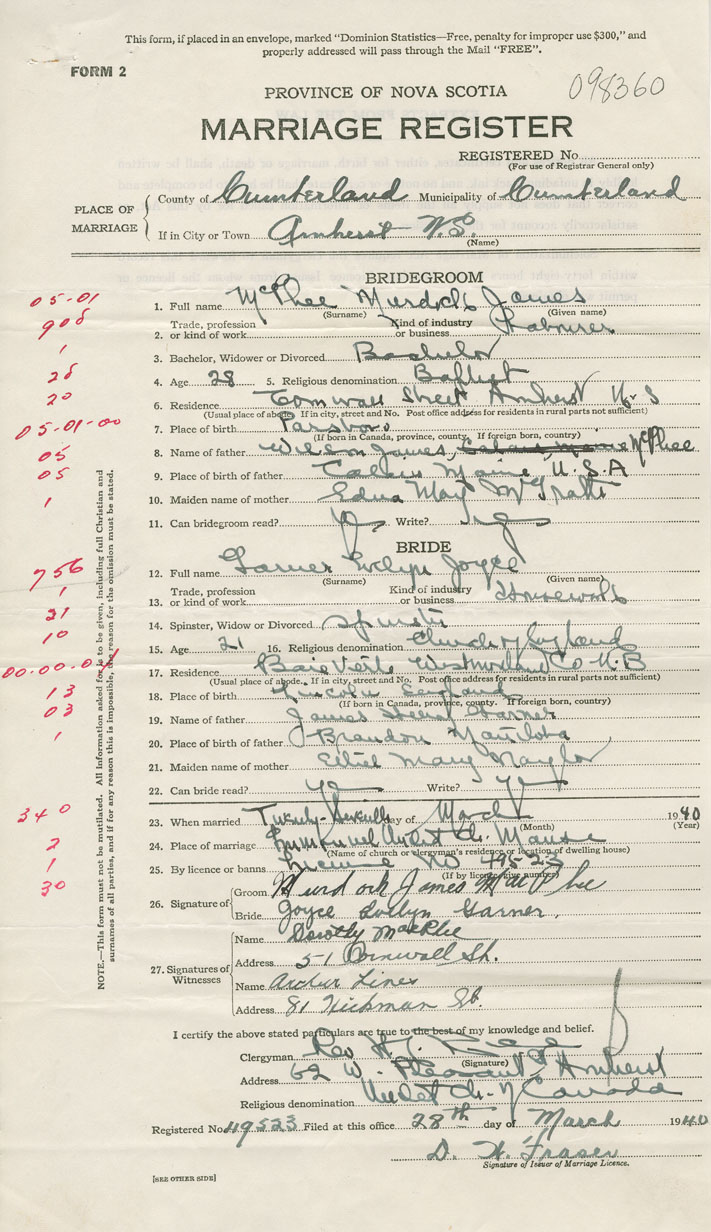 This form, if placed in an envelope, marked "Dominion Statistics—Free, penalty for improper use $300," and
properly addressed will pass through the Mail "FREE".
FORM 2
098360
PROVINCE OF NOVA SCOTIA
MARRIAGE REGISTER
REGISTERED No.
(For use of Registrar General only)
PLACE OF MARRIAGE
County of Cumberland Municipality of Cumberland
If in City or Town Amherst N.S.
(Name)
BRIDEGROOM
05-01
1. Full name McPhee Murdoch James
(Surname) (Given name)
908
2. Trade, profession or kind of work Kind of industry or business Labourer
1
3. Bachelor, Widower or Divorced Bachelor
28
4. Age 28 5. Religious denomination Baptist
20
6. Residence Cornwall Street Amherst N.S
(Usual place of abode. If in city, street and No. Post office address for residents in rural parts not sufficient)
05-01-00
7. Place of birth Parsboro
(If born in Canada, province, county. If foreign born, country)
05
8. Name of father James, McPhee
05
9. Place of birth of father Calais Maine U.S.A
1
10. Maiden name of mother Edna May
11. Can bridegroom read? yes Write? yes
BRIDE
12. Full name Garner Evelyn Joyce
(Surname) (Given name)
756
1
13. Trade, profession or kind of work Kind of industry or business Housework
21
14. Spinster, Widow or Divorced Spinster
10
15. Age 21 16. Religious denomination Church of England
00-00-0
17. Residence Baie Verte Westmorland Co N.B
(Usual place of abode. If in city, street and No. Post office address for residents in rural parts not sufficient)
13
18. Place of birth Lincoln England
(If born in Canada, province, county. If foreign born, country)
03
19. Name of father James Garner
1
20. Place of birth of father Brandon Manitoba
21. Maiden name of mother Ethel Mary Naylor
22. Can bride read? yes Write? yes
340
23. When married Twenty-seventh day of March 1940
(Month) (Year)
2
24. Place of marriage Immanuel United Ch. Manse
(Name of church or clergyman's residence or location of dwelling house)
1
25. By licence or banns License No 49523
(If by licence give number)
30
26. Signature of
Groom Murdoch James MacPhee
Bride Joyce Evelyn Garner.
27. Signatures of Witnesses
Name Dorothy MacPhee
Address 51 Cornwall St.
Name Archer Lines
Address 81 Hickman St.
I certify the above stated particulars are true to the best of my knowledge and belief.
Clergyman Rev
(Signature)
Address 62 W. Pleasant St Amherst
Religious denomination United Ch. of Canada
Registered No. 49523 Filed at this office 28th day of March 1940
D. W. Fraser
Signature of Issuer of Marriage Licence.
[SEE OTHER SIDE]
NOTE.—This form must not be mutilated. All information asked for is to be given, including full Christian and
surnames of all parties, and if for any reason this is impossible, the reason for the omission must be stated.